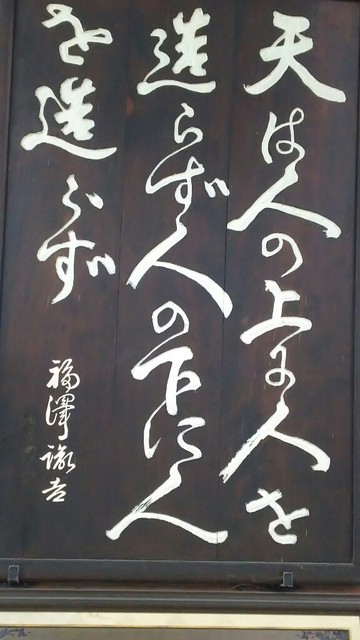 天は人の上に人を
造らず人の下に人
を造らず
福澤諭吉